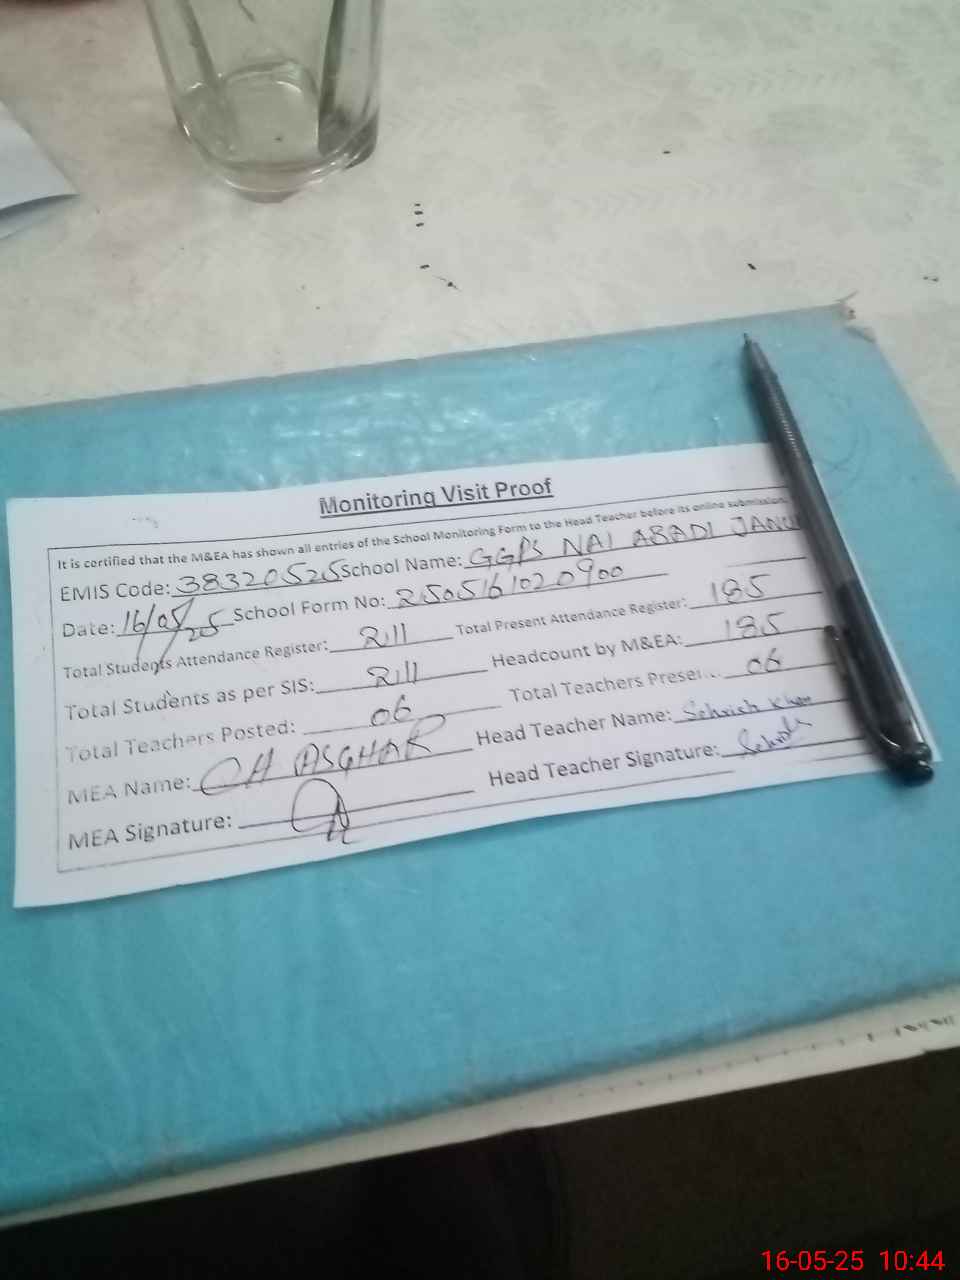 Monitoring Visit Proof
It is certified that the M&EA has shown all entries of the School Monitoring Form to the Head Teacher before its online submission.
EMIS Code: 38320525 School Name: GGPS NAI ABADI
Date: 16/05/25 School Form No:
Total Students Attendance Register: Total Present Attendance Register: 185
Total Students as per SIS: Headcount by M&EA: 185
Total Teachers Posted: 06 Total Teachers Presen... 06
MEA Name: CH ASGHAR Head Teacher Name: Sehrish Khan
MEA Signature: Head Teacher Signature:
16-05-25 10:44